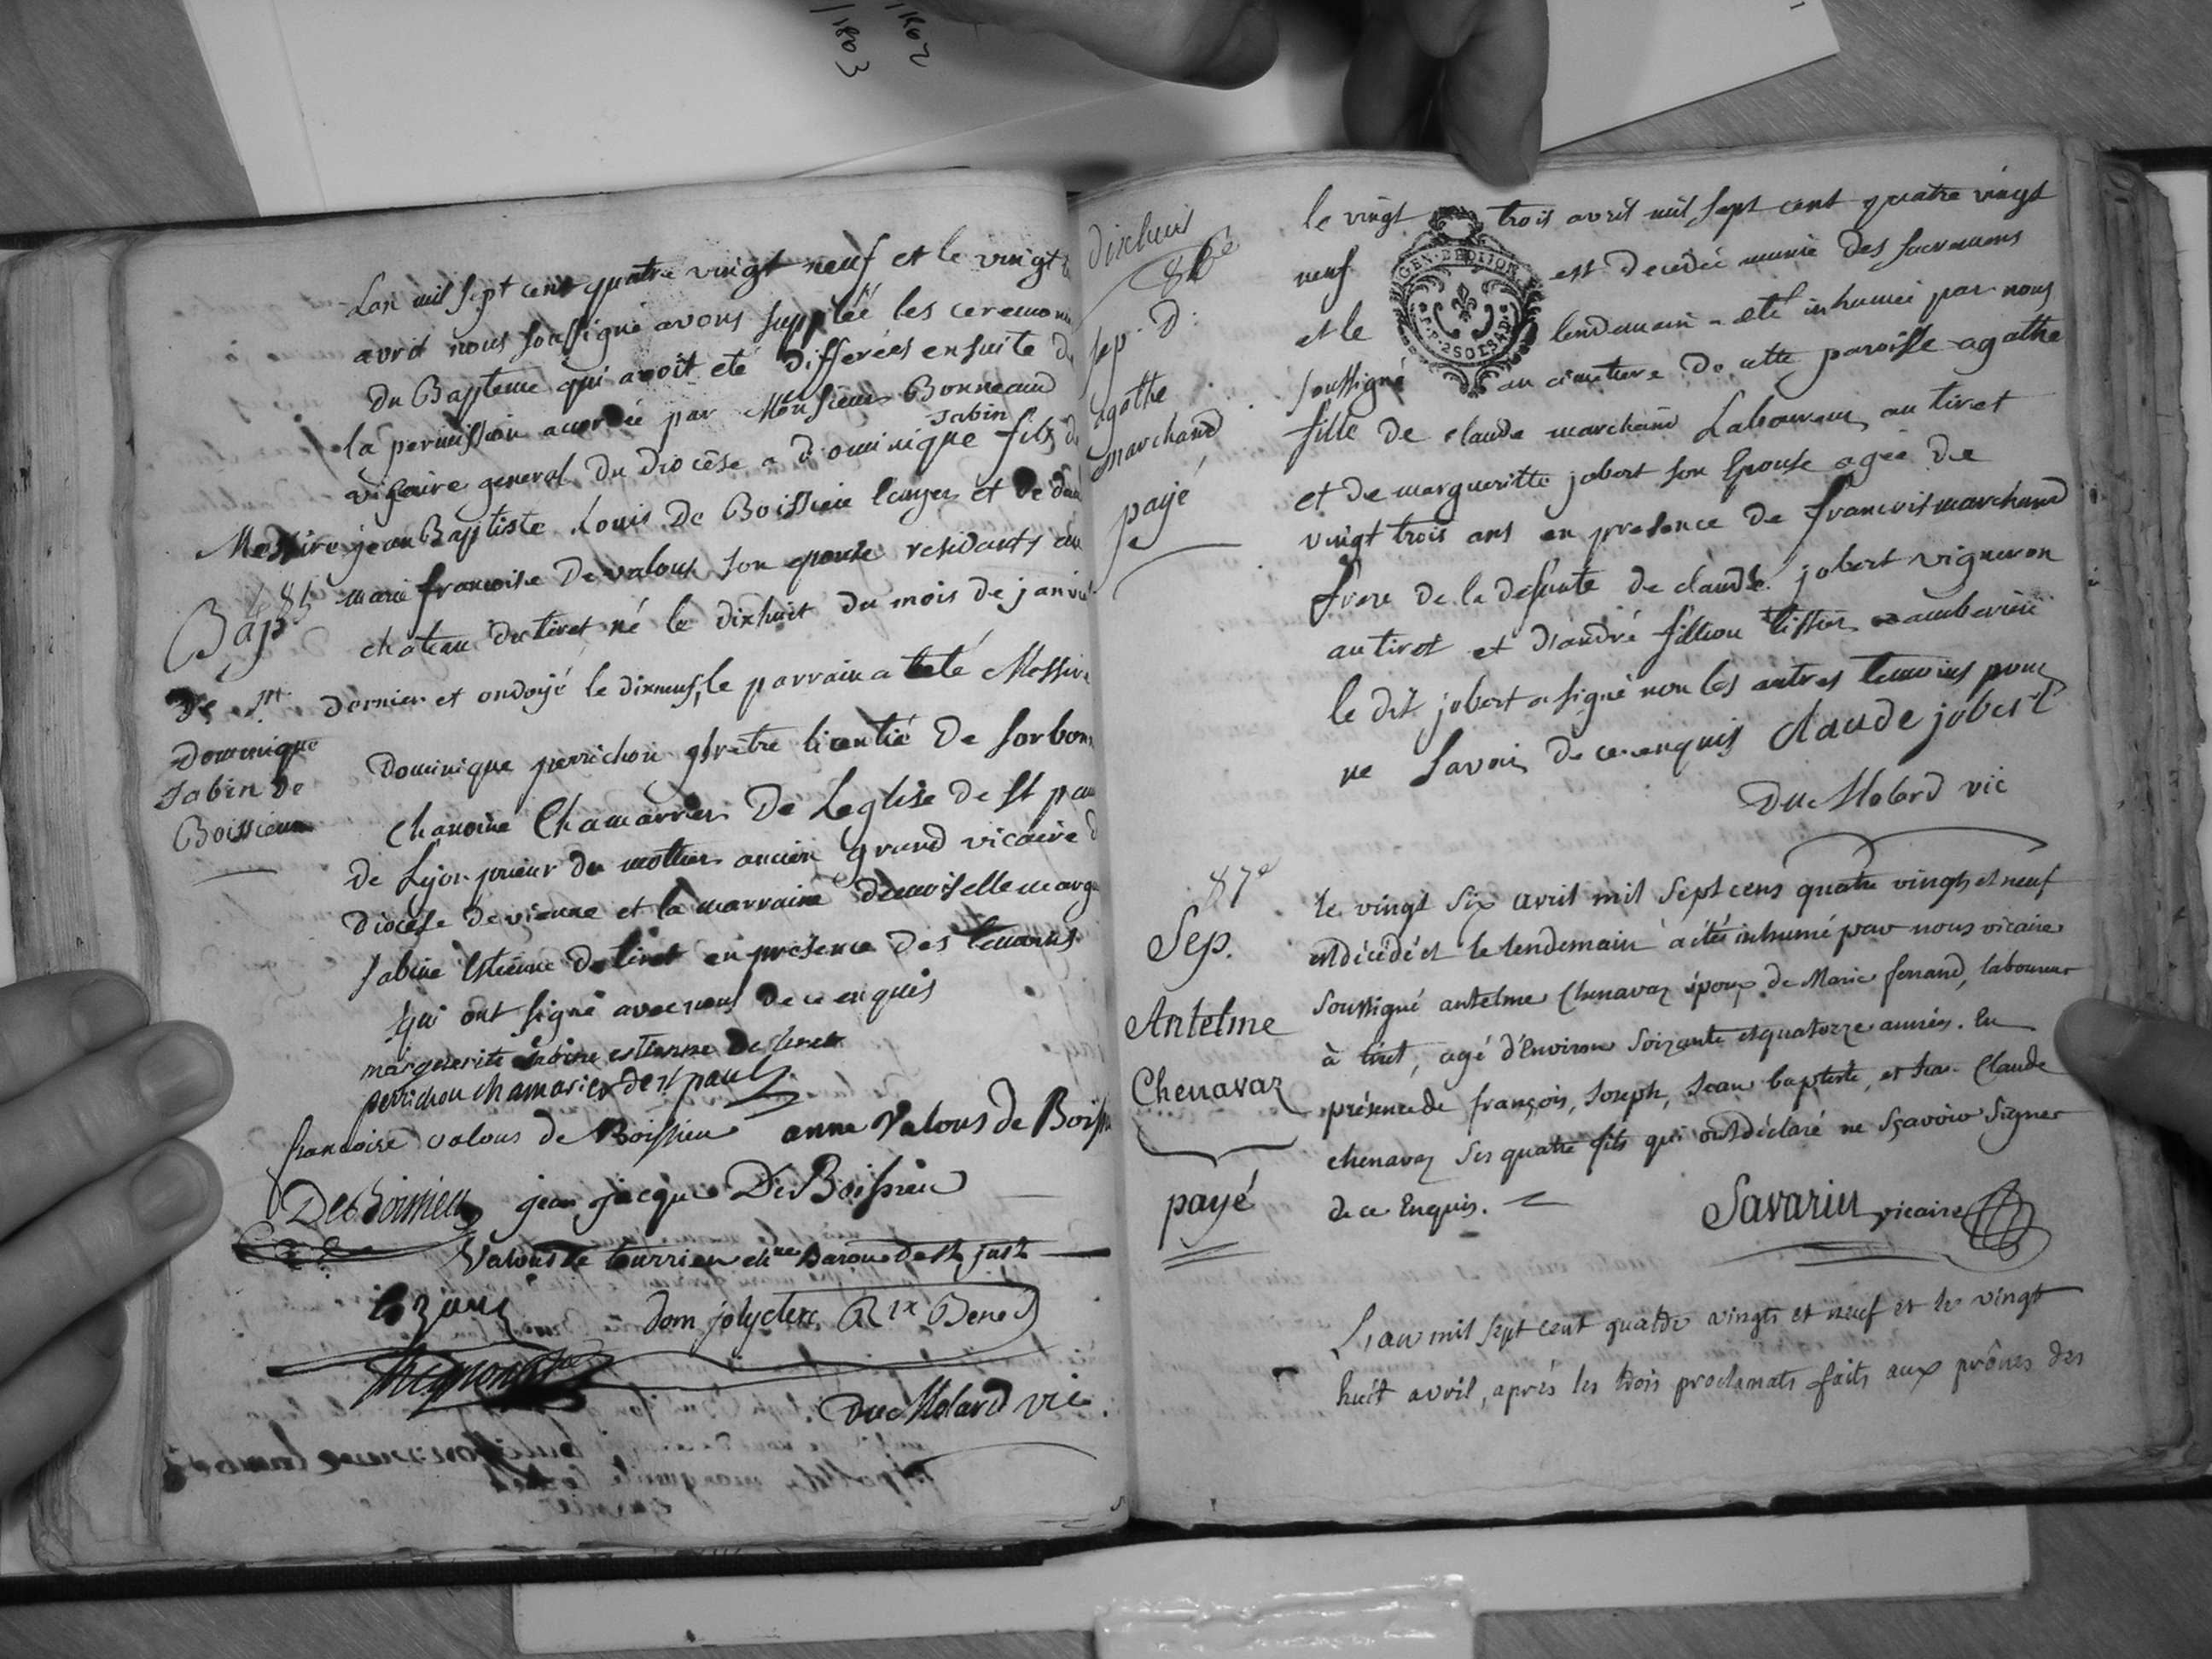 1802
1803
Lan mil sept cent quatre vingt neuf et le vingt
avril nous soussigné avons suppléé les ceremonies
du Bapteme qui avoit eté differées ensuite de
la permission accordée par Monsieur Bonneaud
vicaire general du diocèse a dominique Sabin fils de
Messire jean Baptiste Louis De Boissieu Ecuyer et de dame
marie francoise De valous son epouse residants au
chateau du tiret né le dixhuit du mois de janvier
dernier et ondoyé le dixneuf, le parrain a eté Messire
Dominique perrichon prêtre licentié De Sorbonne
chanoine Chamarrier De Leglise de St paul
de Lyon prieur du mottier ancien grand vicaire du
diocèse de vienne et la marraine demoiselle marg
sabine Estienne du tiret en presence des temoins
qui ont signé avec nous de ce enquis
marguerite sabine estienne du tiret
perrichon chamarier de st paul
francoise valous de Boissieu anne Valous de Boiss
De Boissieu jean jacque De Boissieu
Valous de tourrieu ch.ne Baron de st just
dom jolyclerc Bene
Duc Molard vic.
85
Bap
De Mr
Dominique
Sabin de
Boissieux
dixhuit
86e
sep. D.
agathe
marchand
payé
le vingt trois avril mil sept cent quatre vingt
neuf est decedée munie des sacremens
et le lendemain a eté inhumée par nous
soussigné au cimetiere de cette paroisse agathe
fille de claude marchand Laboureur au tiret
et de margueritte jobert son Epouse agée de
vingt trois ans en presence de francois marchand
frere de la defunte de claude jobert vigneron
au tiret et d'andré fillion tissier a amberieu
le dit jobert a signé non les autres temoins pour
ne Savoir de ce enquis claude jobert
Duc Molard vic
GEN. DE DIJON
87e
Sep.
Antelme
Chenavaz
payé
le vingt six avril mil sept cens quatre vingts et neuf
est décédé et le lendemain a été inhumé par nous vicaire
soussigné antelme Chenavaz époux de Marie ferrand, laboureur
à tiret, agé d'Environ soixante et quatorze années. En
présence de françois, Joseph, Jean baptiste, et Jean Claude
chenavaz ses quatre fils qui ont déclaré ne sçavoir signer
de ce Enquis.
Savarin vicaire
L'an mil sept cent quatre vingts et neuf et le vingt
huit avril, après les trois proclamats faits aux prônes des